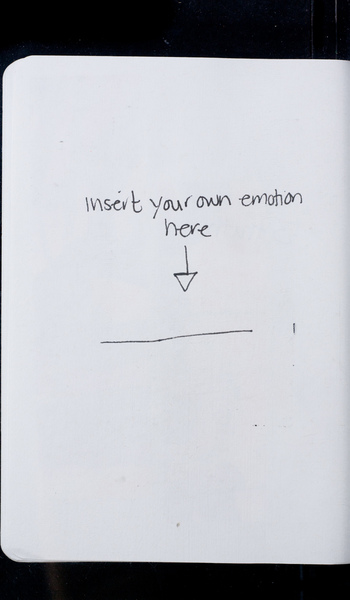 Insert your own emotion
here